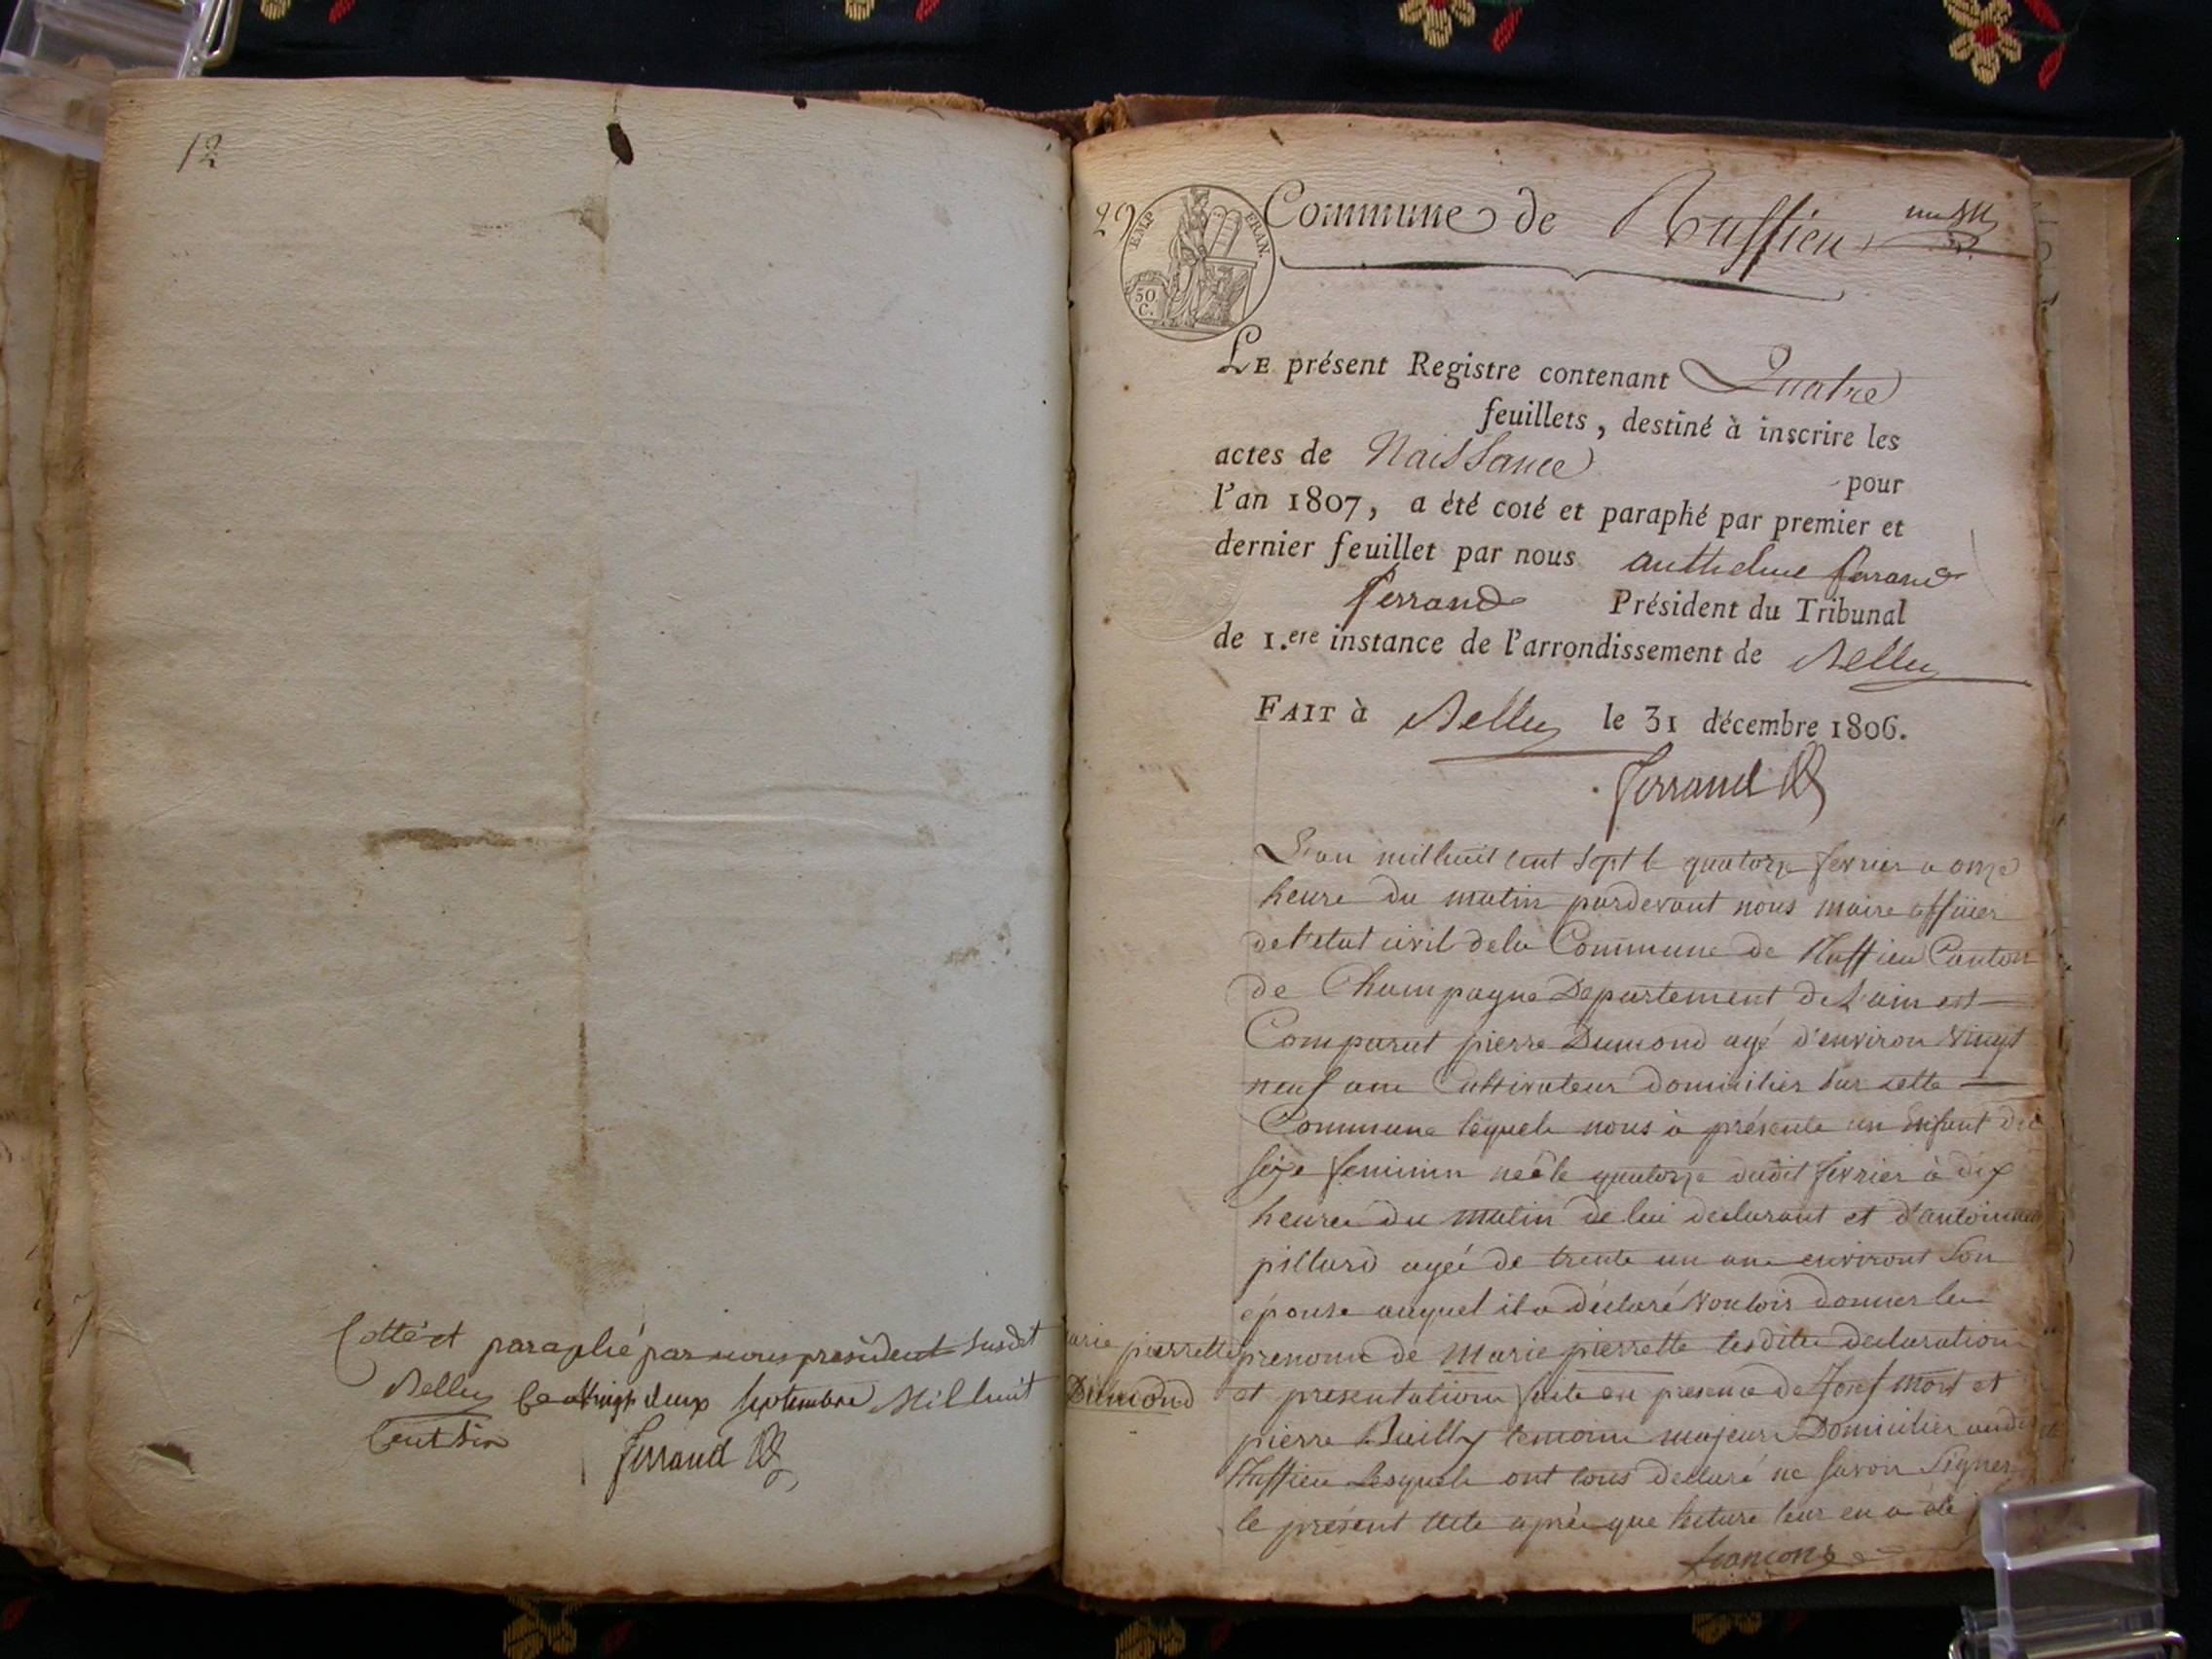 12
Cotté et paraphé par nous président susdit
Belley le vingt deux septembre Mil huit
Cent Six
Ferrand
29
EMP. FRAN.
50 C.
Commune de Ruffieu
LE présent Registre contenant Quatre
feuillets, destiné à inscrire les
actes de Naissance pour
l'an 1807, a été coté et paraphé par premier et
dernier feuillet par nous anthelme ferrand
ferrand Président du Tribunal
de 1.ere instance de l'arrondissement de Belley
FAIT à Belley le 31 décembre 1806.
Ferrand
L'an mil huit cent sept le quatorze fevrier a onze
heure du matin pardevant nous maire officier
de l'etat civil de la Commune de Ruffieu Canton
de Champagne Departement de L'ain est
Comparut pierre Dumond agé d'environ vingt
neuf ans Cultivateur domicilier sur cette
Commune lequele nous à présenté un Enfant du
seixe feminin neé le quatorze dudit fevrier à dix
heures du matin de lui declarant et d'antoinette
pillard ageé de trente un ans environt son
épouse auquel il a déclaré vouloir donner les
prenoms de marie pierrette lesdites declaration
arie pierrette
Dumond
et presentation faite en presence de Josef mort et
pierre Builly temoins majeurs Domicilier audit
Ruffieu Lesquels ont tous declaré ne savoir Signer
le présent acte après que lecture leur en a été
francons